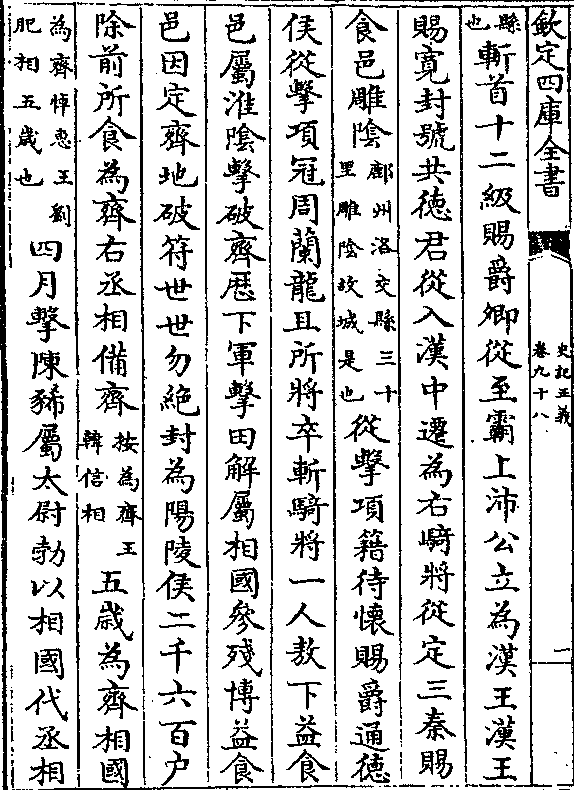 欽定四庫全書 史記正義 卷九十八 一
縣也斬首十二級賜爵卿從至霸上沛公立為漢王漢王
賜寛封號共德君從入漢中遷為右騎將從定三秦賜
食邑雕陰鄜州洛交縣三十里雕陰故城是也從擊項籍待懷賜爵通德
侯從擊項冠周蘭龍且所將卒斬騎將一人敖下益食
邑屬淮陰擊破齊厯下軍擊田解屬相國參殘博益食
邑因定齊地破符世世勿絶封為陽陵侯二千六百户
除前所食為齊右丞相備齊按為齊王韓信相五歲為齊相國
為齊悼惠王劉肥相五歲也四月擊陳豨屬太尉勃以相國代丞相